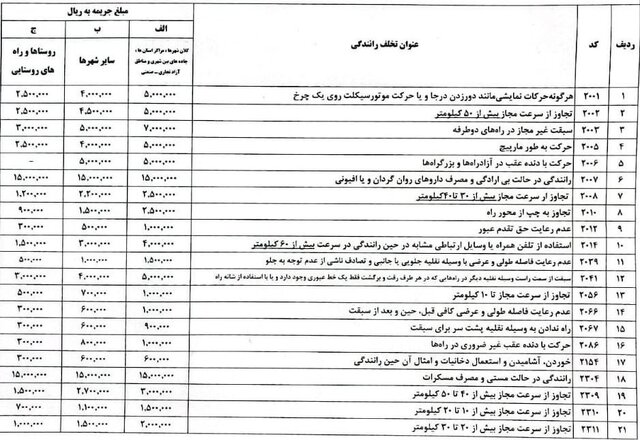 مبلغ جریمه به ریال
ردیف کد عنوان تخلف رانندگی الف ب ج
کلان شهرها، مراکز استان ها، جاده های بین شهری و مناطق آزاد تجاری – صنعتی
سایر شهرها
روستاها و راه های روستایی
۱ ۲۰۰۱ هرگونه حرکات نمایشی مانند دورزدن درجا و یا حرکت موتورسیکلت روی یک چرخ ۵,۰۰۰,۰۰۰ ۴,۰۰۰,۰۰۰ ۲,۵۰۰,۰۰۰
۲ ۲۰۰۲ تجاوز از سرعت مجاز بیش از ۵۰ کیلومتر ۵,۰۰۰,۰۰۰ ۴,۵۰۰,۰۰۰ ۲,۵۰۰,۰۰۰
۳ ۲۰۰۳ سبقت غیر مجاز در راه‌های دوطرفه ۷,۰۰۰,۰۰۰ ۵,۰۰۰,۰۰۰ ۳,۰۰۰,۰۰۰
۴ ۲۰۰۵ حرکت به طور مارپیچ ۵,۰۰۰,۰۰۰ ۴,۰۰۰,۰۰۰ ۲,۵۰۰,۰۰۰
۵ ۲۰۰۶ حرکت با دنده عقب در آزادراه‌ها و بزرگراه‌ها ۵,۰۰۰,۰۰۰ ۵,۰۰۰,۰۰۰ –
۶ ۲۰۰۷ رانندگی در حالت بی ارادگی و مصرف داروهای روان گردان و یا افیونی ۱۵,۰۰۰,۰۰۰ ۱۵,۰۰۰,۰۰۰ ۱۵,۰۰۰,۰۰۰
۷ ۲۰۰۸ تجاوز از سرعت مجاز بیش از ۳۰ تا ۴۰ کیلومتر ۲,۵۰۰,۰۰۰ ۲,۲۰۰,۰۰۰ ۱,۲۰۰,۰۰۰
۸ ۲۰۱۰ تجاوز به چپ از محور راه ۲,۵۰۰,۰۰۰ ۱,۵۰۰,۰۰۰ ۹۰۰,۰۰۰
۹ ۲۰۱۲ عدم رعایت حق تقدم عبور ۱,۰۰۰,۰۰۰ ۵۰۰,۰۰۰ ۳۰۰,۰۰۰
۱۰ ۲۰۱۴ استفاده از تلفن همراه یا وسایل ارتباطی مشابه در حین رانندگی در سرعت بیش از ۶۰ کیلومتر ۴,۰۰۰,۰۰۰ ۳,۰۰۰,۰۰۰ ۱,۵۰۰,۰۰۰
۱۱ ۲۰۳۹ عدم رعایت فاصله طولی و عرضی با وسیله نقلیه جلویی یا جانبی و تصادف ناشی از عدم توجه به جلو ۱,۵۰۰,۰۰۰ ۱,۰۰۰,۰۰۰ ۵۰۰,۰۰۰
۱۲ ۲۰۴۱ سبقت از سمت راست وسیله نقلیه دیگر در راه‌هایی که در هر طرف رفت و برگشت فقط یک خط عبوری وجود دارد و یا با استفاده از شانه راه ۵,۰۰۰,۰۰۰ ۴,۰۰۰,۰۰۰ ۳,۰۰۰,۰۰۰
۱۳ ۲۰۵۶ تجاوز از سرعت مجاز تا ۱۰ کیلومتر ۱,۰۰۰,۰۰۰ ۷۰۰,۰۰۰ ۵۰۰,۰۰۰
۱۴ ۲۰۶۶ عدم رعایت فاصله طولی و عرضی کافی قبل، حین و بعد از سبقت ۱,۰۰۰,۰۰۰ ۶۰۰,۰۰۰ ۳۰۰,۰۰۰
۱۵ ۲۰۶۷ راه ندادن به وسیله نقلیه پشت سر برای سبقت ۹۰۰,۰۰۰ ۶۰۰,۰۰۰ ۳۰۰,۰۰۰
۱۶ ۲۰۸۶ حرکت با دنده عقب غیر ضروری در راه‌ها ۱,۰۰۰,۰۰۰ ۸۰۰,۰۰۰ ۳۰۰,۰۰۰
۱۷ ۲۱۵۴ خوردن، آشامیدن و استعمال دخانیات و امثال آن حین رانندگی ۶۰۰,۰۰۰ ۶۰۰,۰۰۰ ۳۰۰,۰۰۰
۱۸ ۲۳۰۴ رانندگی در حالت مستی و مصرف مسکرات ۱۵,۰۰۰,۰۰۰ ۱۵,۰۰۰,۰۰۰ ۱۵,۰۰۰,۰۰۰
۱۹ ۲۳۰۹ تجاوز از سرعت مجاز بیش از ۴۰ تا ۵۰ کیلومتر ۳,۰۰۰,۰۰۰ ۲,۷۰۰,۰۰۰ ۱,۵۰۰,۰۰۰
۲۰ ۲۳۱۰ تجاوز از سرعت مجاز بیش از ۱۰ تا ۲۰ کیلومتر ۱,۵۰۰,۰۰۰ ۱,۱۰۰,۰۰۰ ۷۰۰,۰۰۰
۲۱ ۲۳۱۱ تجاوز از سرعت مجاز بیش از ۲۰ تا ۳۰ کیلومتر ۲,۰۰۰,۰۰۰ ۱,۵۰۰,۰۰۰ ۱,۰۰۰,۰۰۰